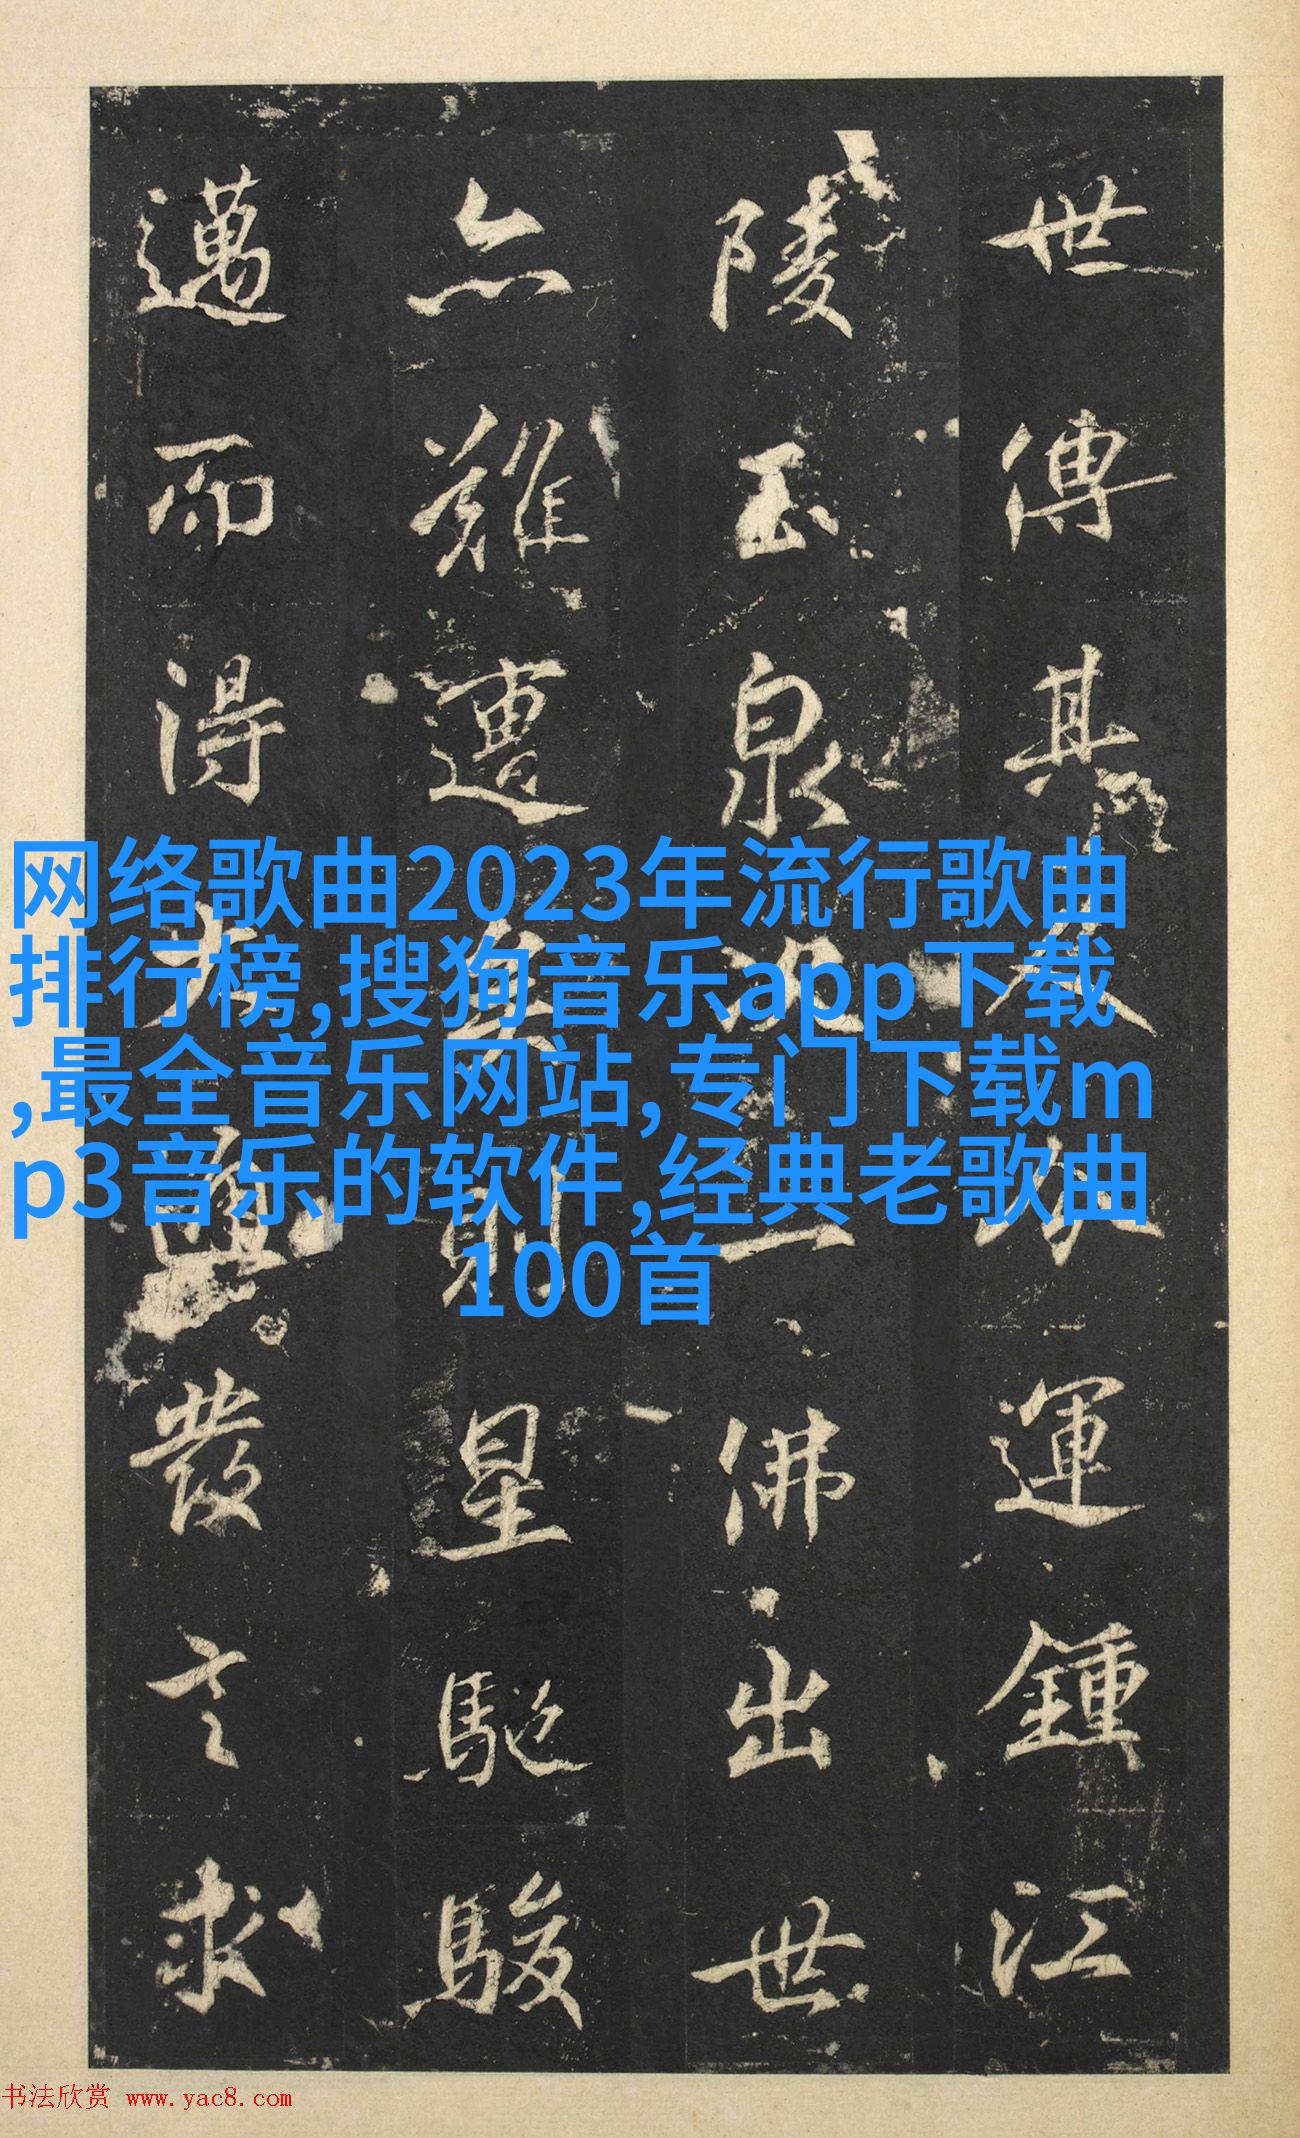 世傳其運鍾江
陵玉泉一佛出世
亦難遭則星馳駿
邁而得發言求
网络歌曲2023年流行歌曲
排行榜,搜狗音乐app下载
,最全音乐网站,专门下载m
p3音乐的软件,经典老歌曲
100首
书法欣赏 www.yac8.com